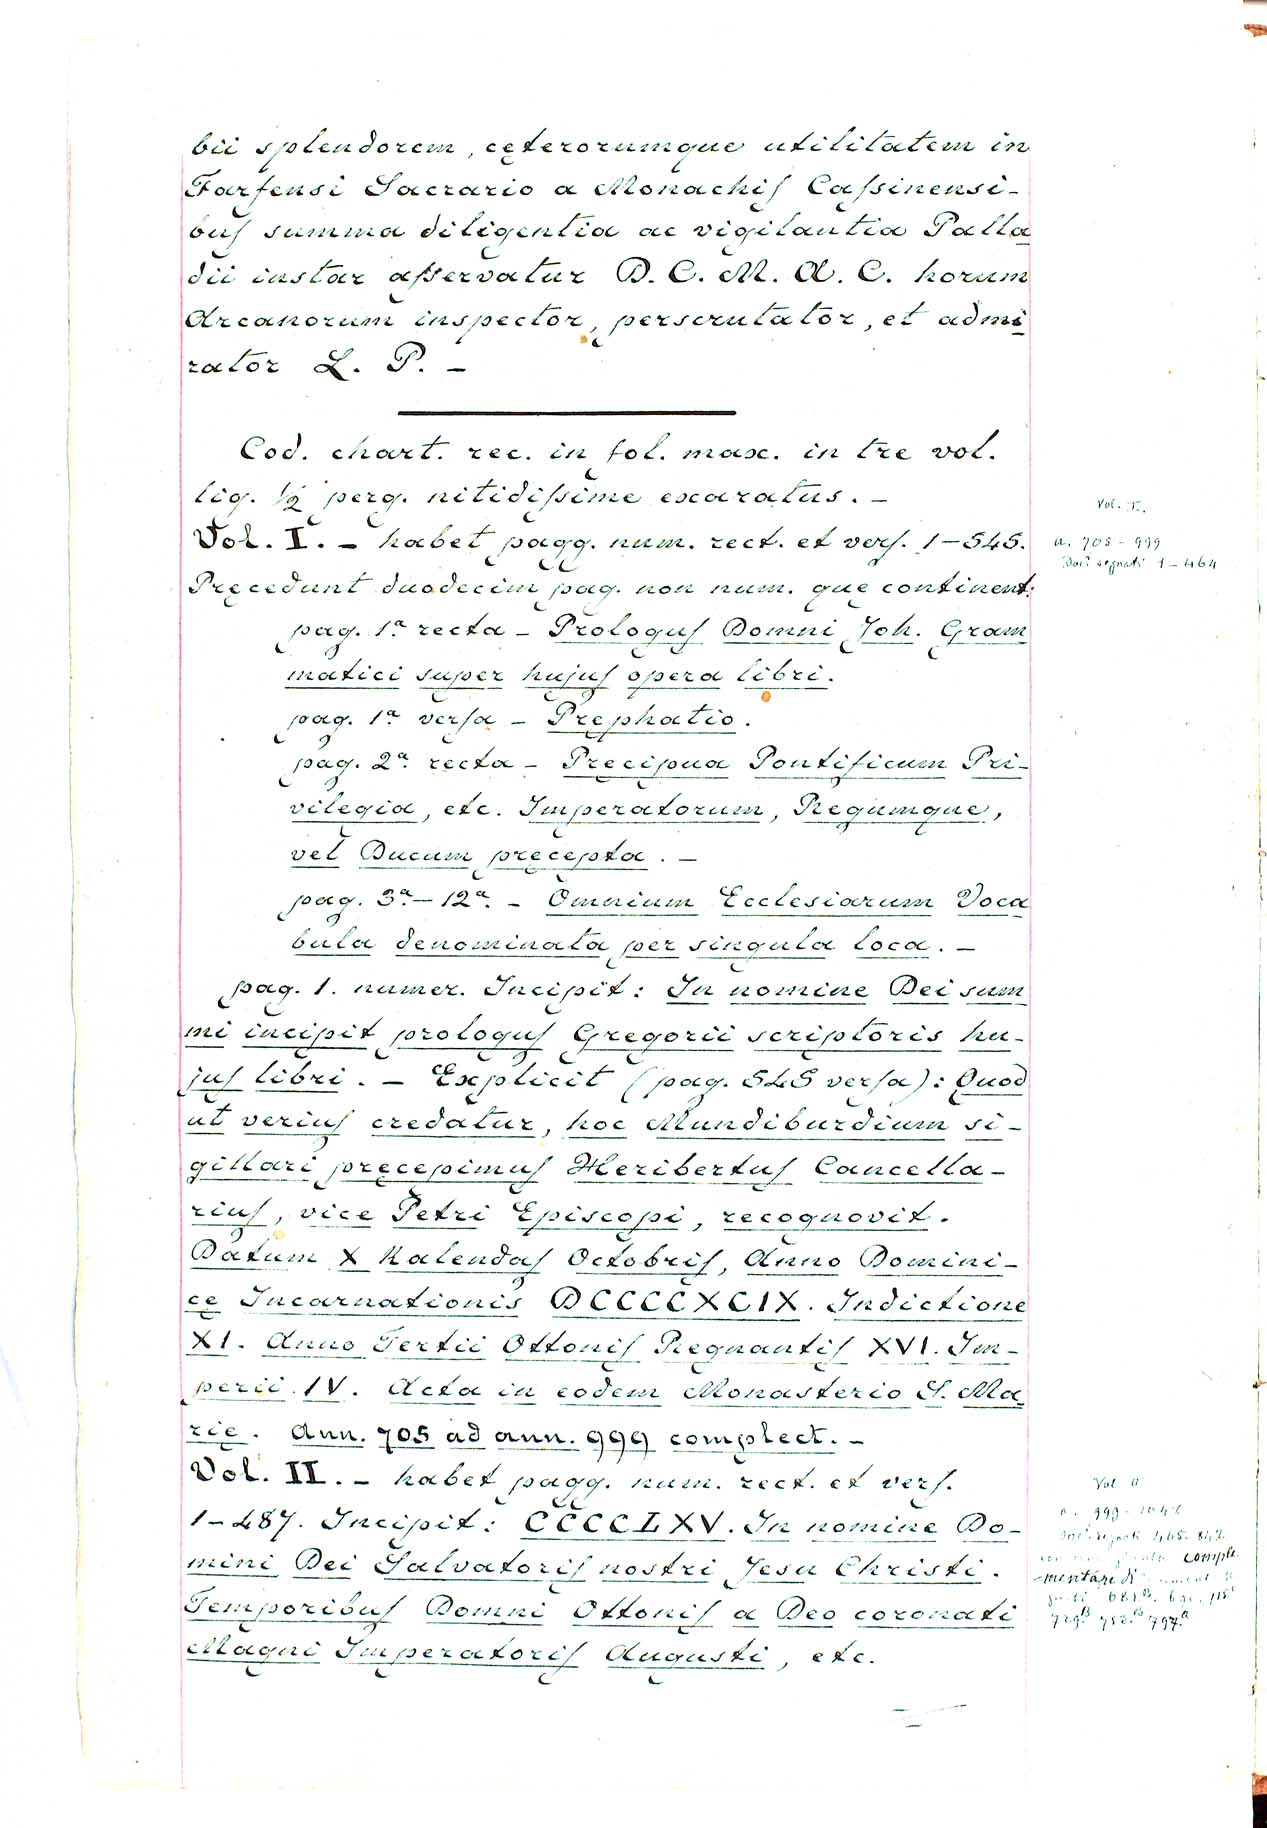 bii splendorem, cęterorumque utilitatem in
Farfensi Sacrario a Monachiſ Caſsinensi-
buſ summa diligentia ac vigilantia Palla
dii instar aſservatur D. C. M. A. C. horum
Arcanorum inspector, perscrutator, et admi
rator L. P. -
Cod. chart. rec. in fol. max. in tre vol.
lig. ½ perg. nitidiſsime exaratus. -
Vol. I. - habet pagg. num. rect. et verſ. 1-545.
Pręcedunt duodecim pag. non num. quę continent:
pag. 1ª recta - Prologuſ Domni Joh. Gram
matici super hujuſ opera libri.
pag. 1ª verſa - Prephatio.
pag. 2ª recta - Precipua Pontificum Pri-
vilegia, etc. Imperatorum, Regumque,
vel Ducum pręcepta. -
pag. 3ª-12ª - Omnium Ecclesiarum Voca
bula denominata per singula loca. -
pag. 1. numer. Incipit: In nomine Dei sum
mi incipit prologuſ Gregorii scriptoris hu-
juſ libri. - Explicit (pag. 545 verſa): Quod
ut veriuſ credatur, hoc Mundiburdium si-
gillari pręcepimuſ Heribertuſ Cancella-
riuſ, vice Petri Episcopi, recognovit.
Datum X Kalendaſ Octobriſ, Anno Domini-
cę Incarnationis DCCCCXCIX. Indictione
XI. Anno Tertii Ottoniſ Regnantiſ XVI. Im-
perii IV. Acta in eodem Monasterio S. Ma
rię. Ann. 705 ad ann. 999 complect. -
Vol. II. - habet pagg. num. rect. et verſ.
1-487. Incipit: CCCCLXV. In nomine Do-
mini Dei Salvatoriſ nostri Jesu Christi.
Temporibuſ Domni Ottoniſ a Deo coronati
Magni Imperatoriſ Augusti, etc.
Vol. I.
a. 705 - 999
Doc.i segnati 1-464
Vol II
a. 999-104
Doc.i segnati 465-847
comple
mentare di
729B 758B 797B